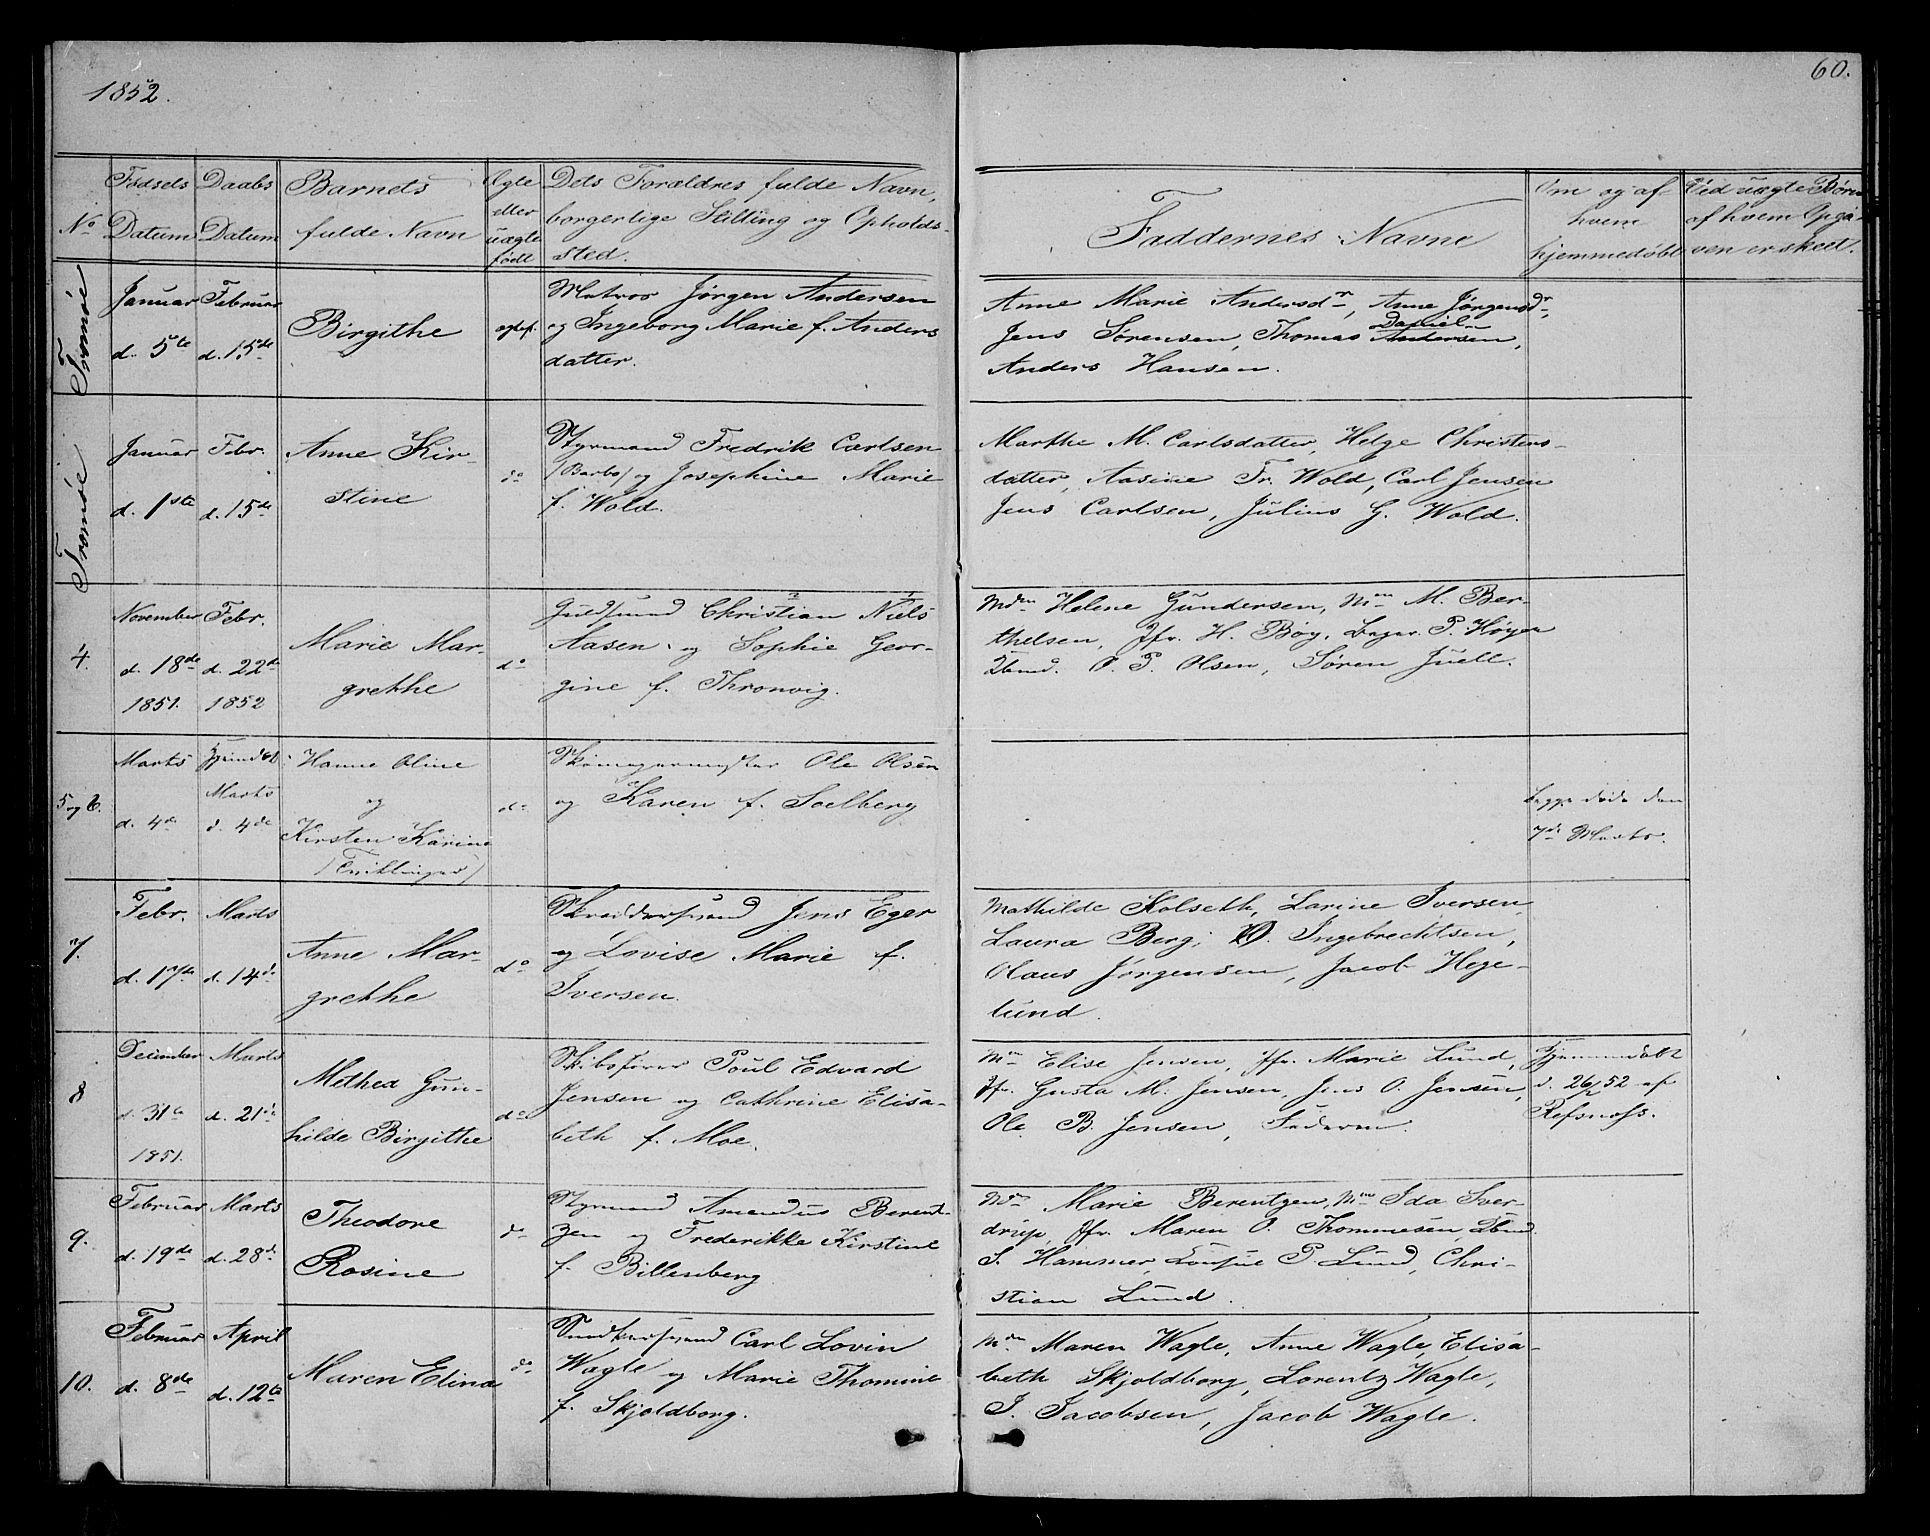 1852.
60.
No
Fødsels Datum
Daabs Datum
Barnets fulde Navn
Ægte eller uægte født
Dets Forældres fulde Navn,
borgerlige Stilling og Opholds-
sted.
Faddernes Navne
Om og af hvem hjemmedøbt
Ved uægte Børn af hvem Opga-
ven er skeet.
Tromøe
Januar d. 5te
Februar d. 15de
Birgithe
ægtef.
Matros Jørgen Andersen
og Ingeborg Marie f. Anders
datter.
Anne Marie Andersdr, Anne Jørgensdr,
Daniel
Jens Sørensen, Thomas Andersen,
Anders Hansen.
Tromøe
Januar d. 1ste
Febr. d. 15de
Anne Kir-
stine
do
Styrmand Fredrik Carlsen
/Barbo/ og Josephine Marie
f. Wold.
Marthe M. Carlsdatter, Helge Christens-
datter, Aasine Fr. Wold, Carl Jensen
Jens Carlsen, Julius G. Wold.
4.
November d. 18de 1851.
Febr. d. 22de 1852
Marie Mar-
grethe
do
Guldsmed Christian Niels
Aasen og Sophie Geor-
gine f. Thronvig.
Mdm Helene Gundersen, Mm M. Ber-
thelsen, Jfr. H. Bøy, P. Høyer
O. P. Olsen, Søren Juell.
5 og 6.
Marts d. 4de
Marts d. 4de
Hanne Oline
og
Kirsten Karine
/Tvillinger/
do
Skomagermester Ole Olsen
og Karen f. Solberg
begge døde den
7de Marts.
7.
Febr. d. 17de
Marts d. 14de
Anne Mar-
grethe
do
Skræddersvend Jens Eger
og Lovise Marie f.
Iversen.
Mathilde Kolseth, Larine Iversen,
Laura Berg, O. Ingebrechtsen,
Olaus Jørgensen, Jacob Hege-
lund.
8
December d. 31te 1851.
Marts d. 21de
Mathea Gun-
hilde Birgithe
do
Skibsfører Poul Edvard
Jensen og Cathrine Elisa-
beth f. Moe.
Mm Elise Jensen, Jfr. Marie Lund,
Jfr. Gusta M. Jensen, Jens O. Jensen,
Ole B. Jensen, Faderen.
Hjemmedøbt
d. 26/2 52 af
Refsnæs.
9.
Februar d. 19de
Marts d. 28de
Theodore
Rosine
do
Styrmand Amandus Berent-
zen og Frederikke Kirstine
f. Billenberg
Mdm Marie Berentzen, Mm Ida Sver-
drup, Jfr. Maren O. Thommesen,
S. Hammer, P. Lund, Chri-
stian Lund.
10.
Februar d. 8de
April d. 12te
Maren Elina
do
Carl Lovin
Wagle og Marie Thomine
f. Skjoldborg.
Mdm Maren Wagle, Anne Wagle, Elisa-
beth Skjoldborg, Lorentz Wagle,
J. Jacobsen, Jacob Wagle.